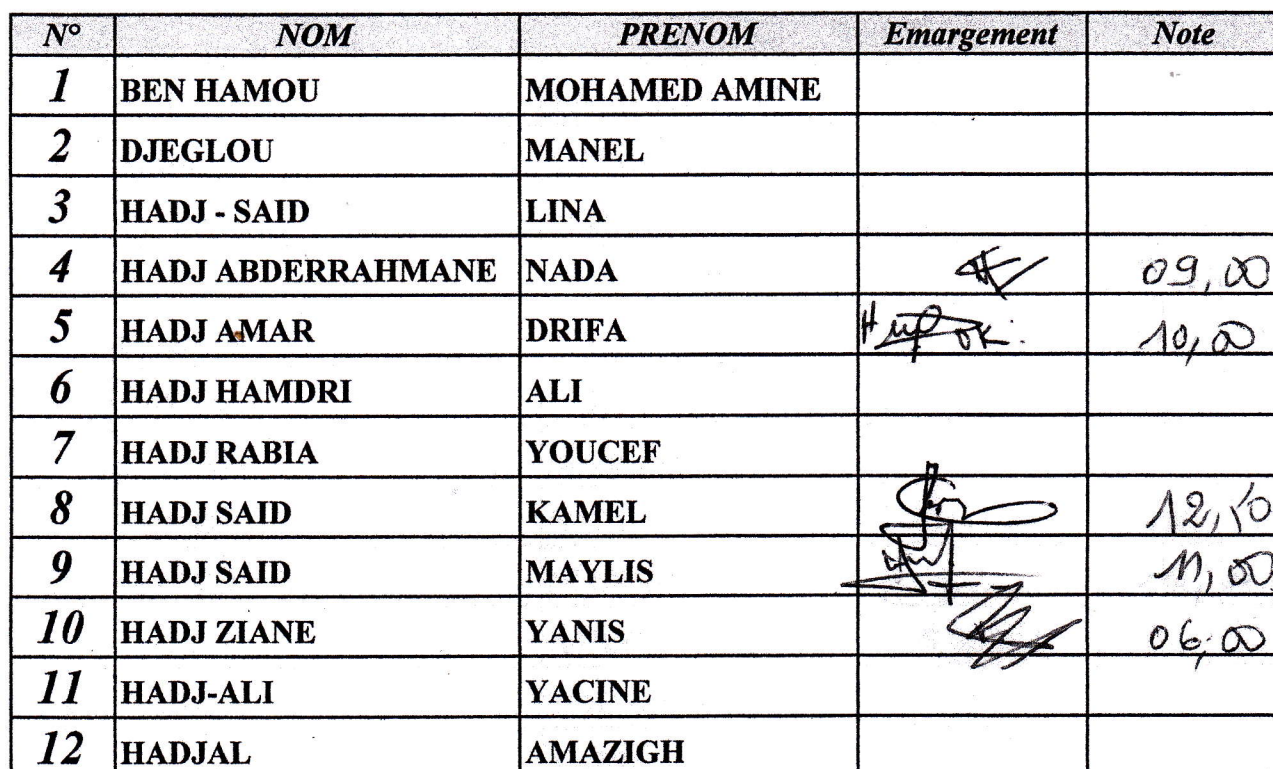 N° NOM PRENOM Emargement Note
1 BEN HAMOU MOHAMED AMINE
2 DJEGLOU MANEL
3 HADJ - SAID LINA
4 HADJ ABDERRAHMANE NADA 09,00
5 HADJ AMAR DRIFA OK. 10,00
6 HADJ HAMDRI ALI
7 HADJ RABIA YOUCEF
8 HADJ SAID KAMEL 12,50
9 HADJ SAID MAYLIS 11,00
10 HADJ ZIANE YANIS 06,00
11 HADJ-ALI YACINE
12 HADJAL AMAZIGH